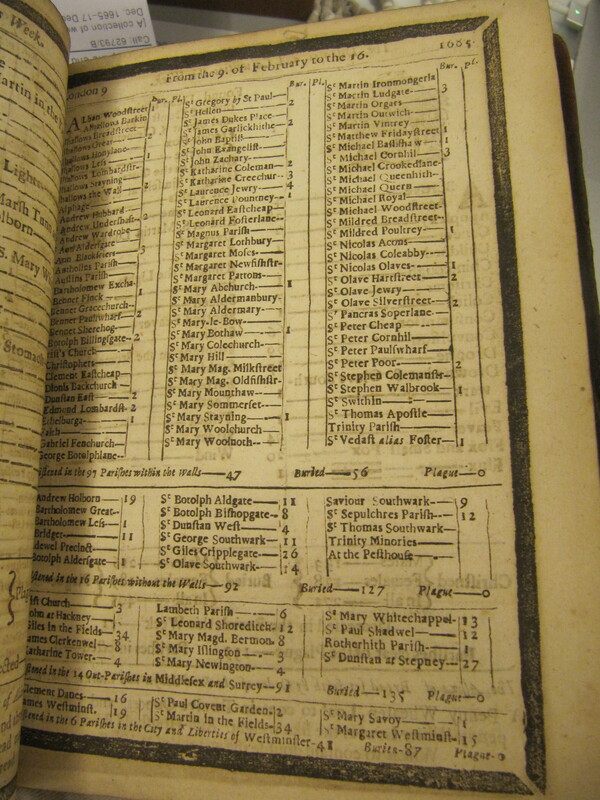 Call: 62793.8
(A collection of w
Dec. 1665-17 De
Week.
Martin in the
Light
Marish Tunn
olborn
S. Mary W
Stomach
London 9
From the 9. of February to the 16.
1665
Bur. Pl.
Bur. Pl.
Bur. Pl.
ALban Woodstreet 1
Alhallows Barkin
hallows Breadstreet 2
hallows Great
hallows Honylane
hallows Less 1
hallows Lumbardstr
hallows Stayning
hallows the Wall 2
Alphage
Andrew Hubbard
Andrew Undershaft 2
Andrew Wardrobe
Ann Aldersgate
Ann Blackfriers 3
Antholins Parish
Austins Parish
Bartholomew Excha.
Bennet Fynck 1
Bennet Gracechurch
Bennet Paulswharf 2
Bennet Sherehog
Botolph Billingsgate 2
rist's Church
Christophers
Clement Eastcheap
Dionis Backchurch
Dunstan East 2
Edmund Lombardst. 2
Ethelburga 1
Faith
Gabriel Fenchurch
George Botolphlane
Sᵗ Gregory by St Paul 2
Sᵗ Hellen
Sᵗ James Dukes Place
Sᵗ James Garlickhithe 2
Sᵗ John Baptist
Sᵗ John Evangelist
Sᵗ John Zachary
Sᵗ Katharine Coleman 2
Sᵗ Katharine Creechur. 3
Sᵗ Laurence Jewry 4
Sᵗ Laurence Pountney 1
Sᵗ Leonard Eastcheap
Sᵗ Leonard Fosterlane
Sᵗ Magnus Parish
Sᵗ Margaret Lothbury
Sᵗ Margaret Moses
Sᵗ Margaret Newfishstr
Sᵗ Margaret Pattons
Sᵗ Mary Abchurch 1
Sᵗ Mary Aldermanbury
Sᵗ Mary Aldermary
Sᵗ Mary-le-Bow
Sᵗ Mary Bothaw 1
Sᵗ Mary Colechurch
Sᵗ Mary Hill
Sᵗ Mary Mag. Milkstreet
Sᵗ Mary Mag. Oldfishstr.
Sᵗ Mary Mounthaw
Sᵗ Mary Sommerset
Sᵗ Mary Stayning 1
Sᵗ Mary Woolchurch
Sᵗ Mary Woolnoth
Sᵗ Martin Ironmongerla
Sᵗ Martin Ludgate 3
Sᵗ Martin Orgars
Sᵗ Martin Outwich
Sᵗ Martin Vintrey
Sᵗ Matthew Fridaystreet 1
Sᵗ Michael Bassishaw 1
Sᵗ Michael Cornhil 3
Sᵗ Michael Crookedlane
Sᵗ Michael Queenhith
Sᵗ Michael Quern
Sᵗ Michael Royal
Sᵗ Michael Woodstreet
Sᵗ Mildred Breadstreet
Sᵗ Mildred Poultrey 1
Sᵗ Nicolas Acons
Sᵗ Nicolas Coleabby
Sᵗ Nicolas Olaves 1
Sᵗ Olave Hartstreet 2
Sᵗ Olave Jewry
Sᵗ Olave Silverstreet 2
Sᵗ Pancras Soperlane
Sᵗ Peter Cheap
Sᵗ Peter Cornhil
Sᵗ Peter Paulswharf
Sᵗ Peter Poor 2
Sᵗ Stephen Colemanstr
Sᵗ Stephen Walbrook 1
Sᵗ Swithin
Sᵗ Thomas Apostle
Trinity Parish
Sᵗ Vedast alias Foster 1
istened in the 97 Parishes within the Walls 47 Buried 56 Plague 0
Andrew Holborn 19
Bartholomew Great
Bartholomew Less 1
Bridget 11
idewel Precinct
Botolph Aldersgate 1
Sᵗ Botolph Aldgate 11
Sᵗ Botolph Bishopgate 8
Sᵗ Dunstan West 4
Sᵗ George Southwark 11
Sᵗ Giles Cripplegate 26
Sᵗ Olave Southwark 14
Saviour Southwark 9
Sᵗ Sepulchres Parish 12
Sᵗ Thomas Southwark
Trinity Minories
At the Pesthouse
istened in the 16 Parishes without the Walls 92 Buried 127 Plague 0
ist Church 3
John at Hackney
Giles in the Fields 34
James Clerkenwel 8
Katharine Tower 4
Lambeth Parish 6
Sᵗ Leonard Shoreditch 12
Sᵗ Mary Magd. Bermon. 8
Sᵗ Mary Islington 3
Sᵗ Mary Newington 4
Sᵗ Mary Whitechappel 13
Sᵗ Paul Shadwel 12
Rotherhith Parish 1
Sᵗ Dunstan at Stepney 27
istened in the 14 Out-Parishes in Middlesex and Surrey 91 Buried 135 Plague 0
Clement Danes 16
James Westminst. 19
Sᵗ Paul Covent Garden 2
Sᵗ Martin in the Fields 34
Sᵗ Mary Savoy 1
Sᵗ Margaret Westminst. 15
istened in the 6 Parishes in the City and Liberties of Westminster 41 Buried 87 Plague 0